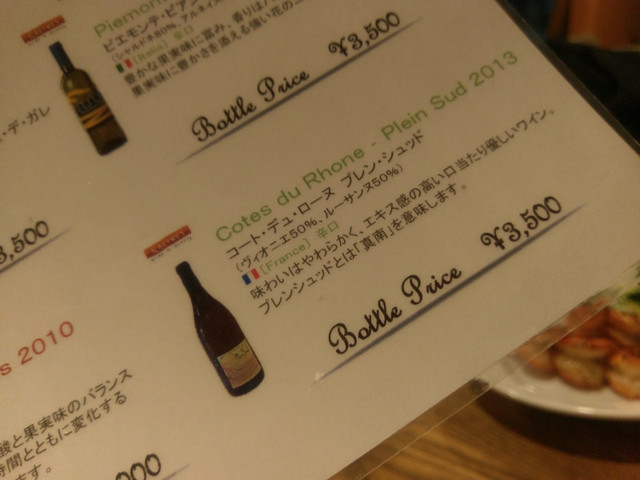 Piemon
ピエモンテ・ビアン
(シャルドネ80%、アルネイス
(Italia) 辛口
豊かな果実味に富み、香りは
果実味に豊かさを添える強い花の
¥3,500
Bottle Price
・デ・ガレ
3,500
Cotes du Rhone - Plein Sud 2013
コート・デュ・ローヌ プレン・シュッド
(ヴィオニエ50%、ルーサンヌ50%)
(France) 辛口
味わいはやわらかく、エキス感の高い口当たり優しいワイン。
プレンシュッドとは「真南」を意味します。
¥3,500
Bottle Price
s 2010
酸と果実味のバランス
時間とともに変化する
ます。
000